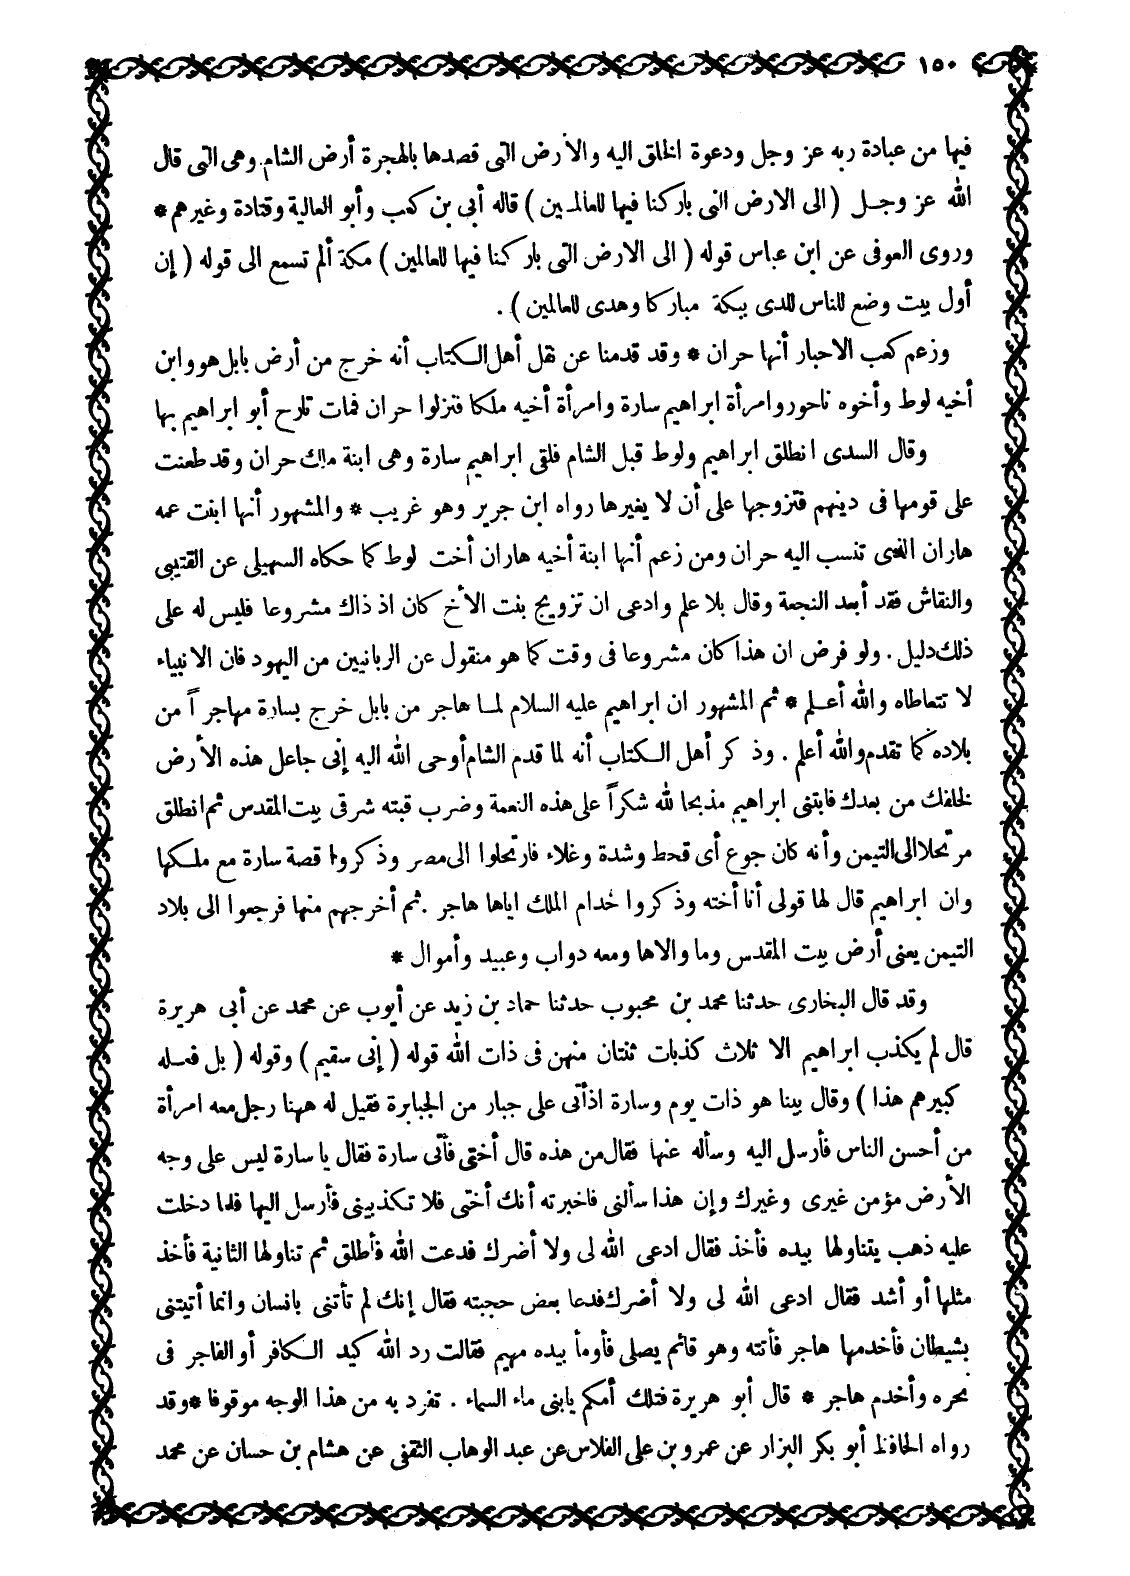 ١٥٠
فيها من عبادة ربه عز وجل ودعوة الخلق اليه والأرض التى قصدها بالهجرة أرض الشام وهى التى قال
الله عز وجل ( الى الارض التى باركنا فيها للعالمين ) قاله أبي بن كعب وأبو العالية وقتادة وغيرهم *
وروى العوفى عن ابن عباس قوله ( الى الارض التى باركنا فيها للعالمين ) مكة ألم تسمع الى قوله ( إن
أول بيت وضع للناس للدى ببكة مباركا وهدى للعالمين ) .
وزعم كعب الاحبار أنها حران * وقد قدمنا عن نقل أهل الكتاب أنه خرج من أرض بابل هو وابن
أخيه لوط وأخوه ناحور وامرأة ابراهيم سارة وامرأة أخيه ملكا فنزلوا حران فمات تارح أبو ابراهيم بها
وقال السدى انطلق ابراهيم ولوط قبل الشام فلقى ابراهيم سارة وهى ابنة ملك حران وقد طعنت
على قومها فى دينهم فتزوجها على أن لا يغيرها رواه ابن جرير وهو غريب * والمشهور أنها ابنت عمه
هاران الذى تنسب اليه حران ومن زعم أنها ابنة أخيه هاران أخت لوط كما حكاه السهيلى عن القتيبى
والنقاش فقد أبعد النجعة وقال بلا علم وادعى ان تزويج بنت الأخ كان اذ ذاك مشروعا فليس له على
ذلك دليل . ولو فرض ان هذا كان مشروعا فى وقت كما هو منقول عن الربانيين من اليهود فان الانبياء
لا تتعاطاه والله أعلم * ثم المشهور ان ابراهيم عليه السلام لما هاجر من بابل خرج بسارة مهاجراً من
بلاده كما تقدم والله أعلم . وذكر أهل الكتاب أنه لما قدم الشام أوحى الله اليه إنى جاعل هذه الأرض
لخلفك من بعدك فابتنى ابراهيم مذبحا لله شكراً على هذه النعمة وضرب قبته شرقى بيت المقدس ثم انطلق
مرتحلا الى التيمن وأنه كان جوع أى قحط وشدة وغلاء فارتحلوا الى مصر وذكروا قصة سارة مع ملكها
وان ابراهيم قال لها قولى أنا أخته وذكروا خدام الملك اياها هاجر . ثم أخرجهم منها فرجعوا الى بلاد
التيمن يعنى أرض بيت المقدس وما والاها ومعه دواب وعبيد وأموال *
وقد قال البخارى حدثنا محمد بن محبوب حدثنا حماد بن زيد عن أيوب عن محمد عن أبى هريرة
قال لم يكذب ابراهيم الا ثلاث كذبات ثنتان منهن فى ذات الله قوله ( إنى سقيم ) وقوله ( بل فعله
كبيرهم هذا ) وقال بينا هو ذات يوم وسارة اذ أتى على جبار من الجبابرة فقيل له ههنا رجل معه امرأة
من أحسن الناس فأرسل اليه وسأله عنها فقال من هذه قال أختى فأتى سارة فقال يا سارة ليس على وجه
الأرض مؤمن غيرى وغيرك وإن هذا سألنى فاخبرته أنك أختى فلا تكذبينى فأرسل اليها فلما دخلت
عليه ذهب يتناولها بيده فأخذ فقال ادعى الله لى ولا أضرك فدعت الله فأطلق ثم تناولها الثانية فأخذ
مثلها أو أشد فقال ادعى الله لى ولا أضرك فدعا بعض حجبته فقال إنك لم تأتنى بانسان وانما أتيتنى
بشيطان فأخدمها هاجر فأتته وهو قائم يصلى فأومأ بيده مهيم فقالت رد الله كيد الكافر أو الفاجر فى
نحره وأخدم هاجر * قال أبو هريرة فتلك أمكم يابنى ماء السماء . تفرد به من هذا الوجه موقوفا * وقد
رواه الحافظ أبو بكر البزار عن عمرو بن على الفلاس عن عبد الوهاب الثقفى عن هشام بن حسان عن محمد